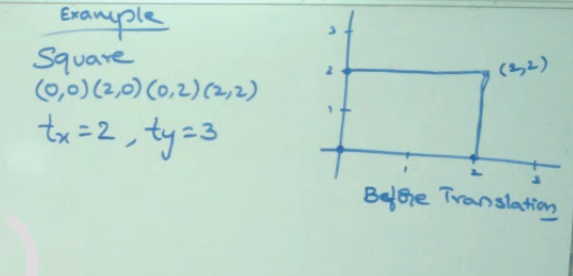 Example
Square
(0,0) (2,0) (0,2) (2,2)
tx = 2 , ty = 3
3
2
1
(2,2)
1
2
3
Before Translation